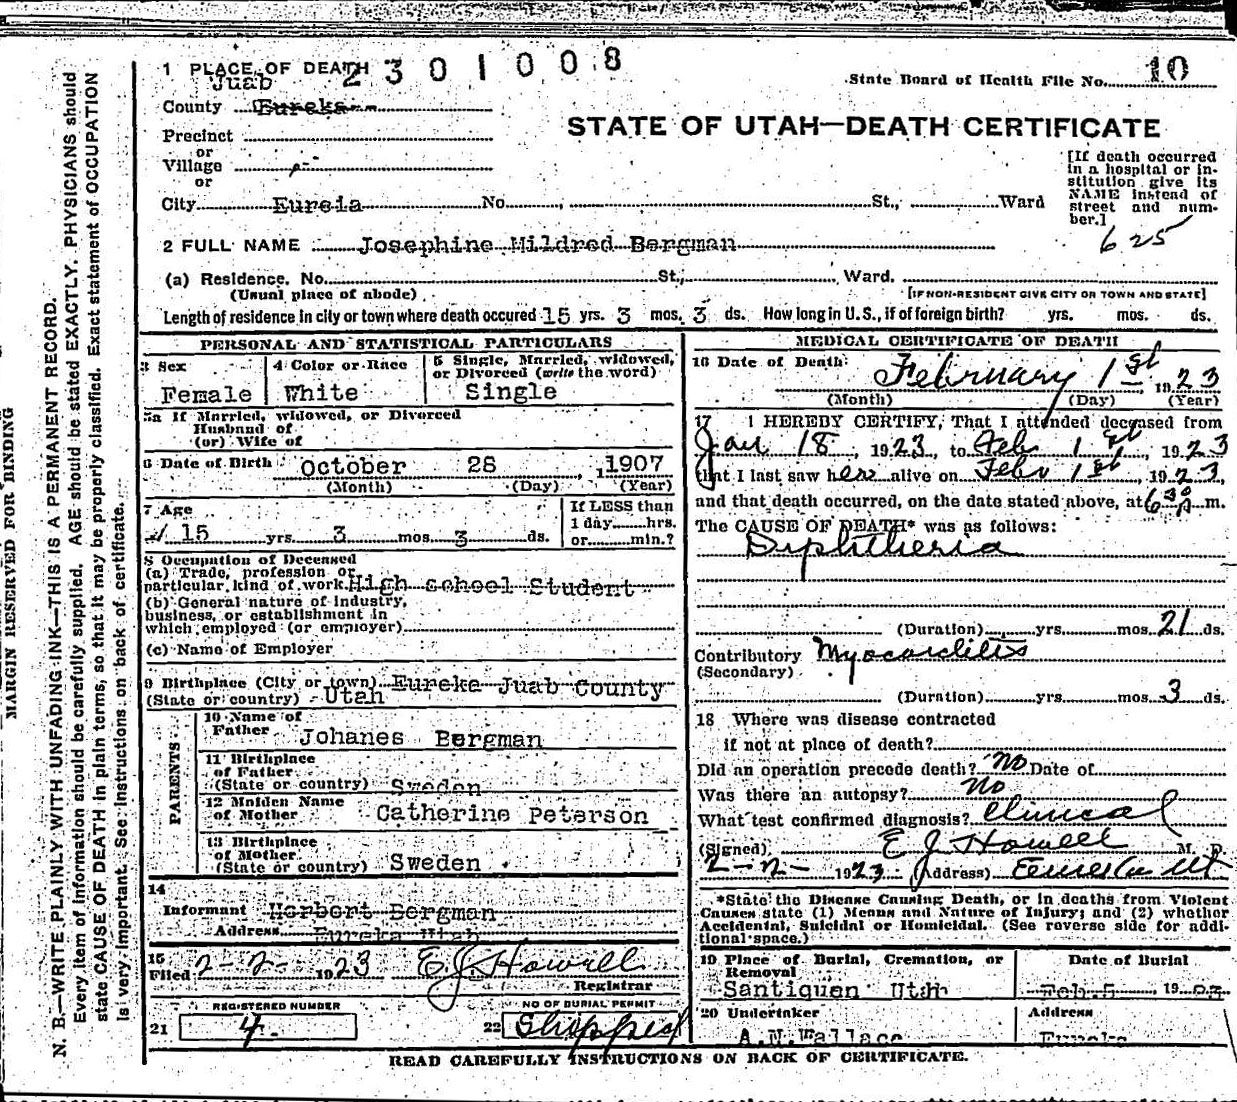 1 PLACE OF DEATH 2301008
State Board of Health File No. 10
Juab
County Eureka
STATE OF UTAH—DEATH CERTIFICATE
Precinct
or
Village
or
City Eureia No. St., Ward
[If death occurred
in a hospital or in-
stitution give its
NAME instead of
street and num-
ber.]
625
2 FULL NAME Josephine Mildred Bergman
(a) Residence. No. St., Ward.
(Usual place of abode) [IF NON-RESIDENT GIVE CITY OR TOWN AND STATE]
Length of residence in city or town where death occured 15 yrs. 3 mos. 3 ds. How long in U.S., if of foreign birth? yrs. mos. ds.
PERSONAL AND STATISTICAL PARTICULARS
3 Sex
Female
4 Color or Race
White
5 Single, Married, widowed,
or Divorced (write the word)
Single
5a If Married, widowed, or Divorced
Husband of
(or) Wife of
6 Date of Birth October 28, 1907
(Month) (Day) (Year)
7 Age
15 yrs. 3 mos. 3 ds.
If LESS than
1 day hrs.
or min.?
8 Occupation of Deceased
(a) Trade, profession or
particular kind of work. High school Student
(b) General nature of industry,
business, or establishment in
which employed (or employer)
(c) Name of Employer
9 Birthplace (City or town) Eureka Juab County
(State or country) Utah
PARENTS
10 Name of
Father Johanes Bergman
11 Birthplace
of Father
(State or country) Sweden
12 Maiden Name
of Mother Catherine Peterson
13 Birthplace
of Mother
(State or country) Sweden.
14
Informant Herbert Bergman
Address Eureka Utah
15
Filed 2-2- 1923 E.J. Howell
Registrar
REGISTERED NUMBER
21 4.
NO OF BURIAL PERMIT
22 Shipped
MEDICAL CERTIFICATE OF DEATH
16 Date of Death: February 1st 1923
(Month) (Day) (Year)
17 I HEREBY CERTIFY, That I attended deceased from
Jan 18, 1923, to Feb 1st, 1923
that I last saw her alive on Feb 1st, 1923,
and that death occurred, on the date stated above, at 630 m.
The CAUSE OF DEATH* was as follows:
Diphtheria
(Duration) yrs. mos. 21 ds.
Contributory Myocarditis
(Secondary)
(Duration) yrs. mos. 3 ds.
18 Where was disease contracted
if not at place of death?
Did an operation precede death? No Date of
Was there an autopsy? No
What test confirmed diagnosis? Clinical
(Signed) E J Howell M. D.
2-2- 1923 (Address) Eureka Ut
*State the Disease Causing Death, or in deaths from Violent
Causes state (1) Means and Nature of Injury; and (2) whether
Accidental, Suicidal or Homicidal. (See reverse side for addi-
tional space.)
19 Place of Burial, Cremation, or
Removal
Santiquen Utah
Date of Burial
Feb 5 1923
20 Undertaker
A.N. Wallace
Address
Eureka
READ CAREFULLY INSTRUCTIONS ON BACK OF CERTIFICATE.
MARGIN RESERVED FOR BINDING
N. B.—WRITE PLAINLY WITH UNFADING INK—THIS IS A PERMANENT RECORD.
Every item of information should be carefully supplied. AGE should be stated EXACTLY. PHYSICIANS should
state CAUSE OF DEATH in plain terms, so that it may be properly classified. Exact statement of OCCUPATION
is very important. See Instructions on back of certificate.